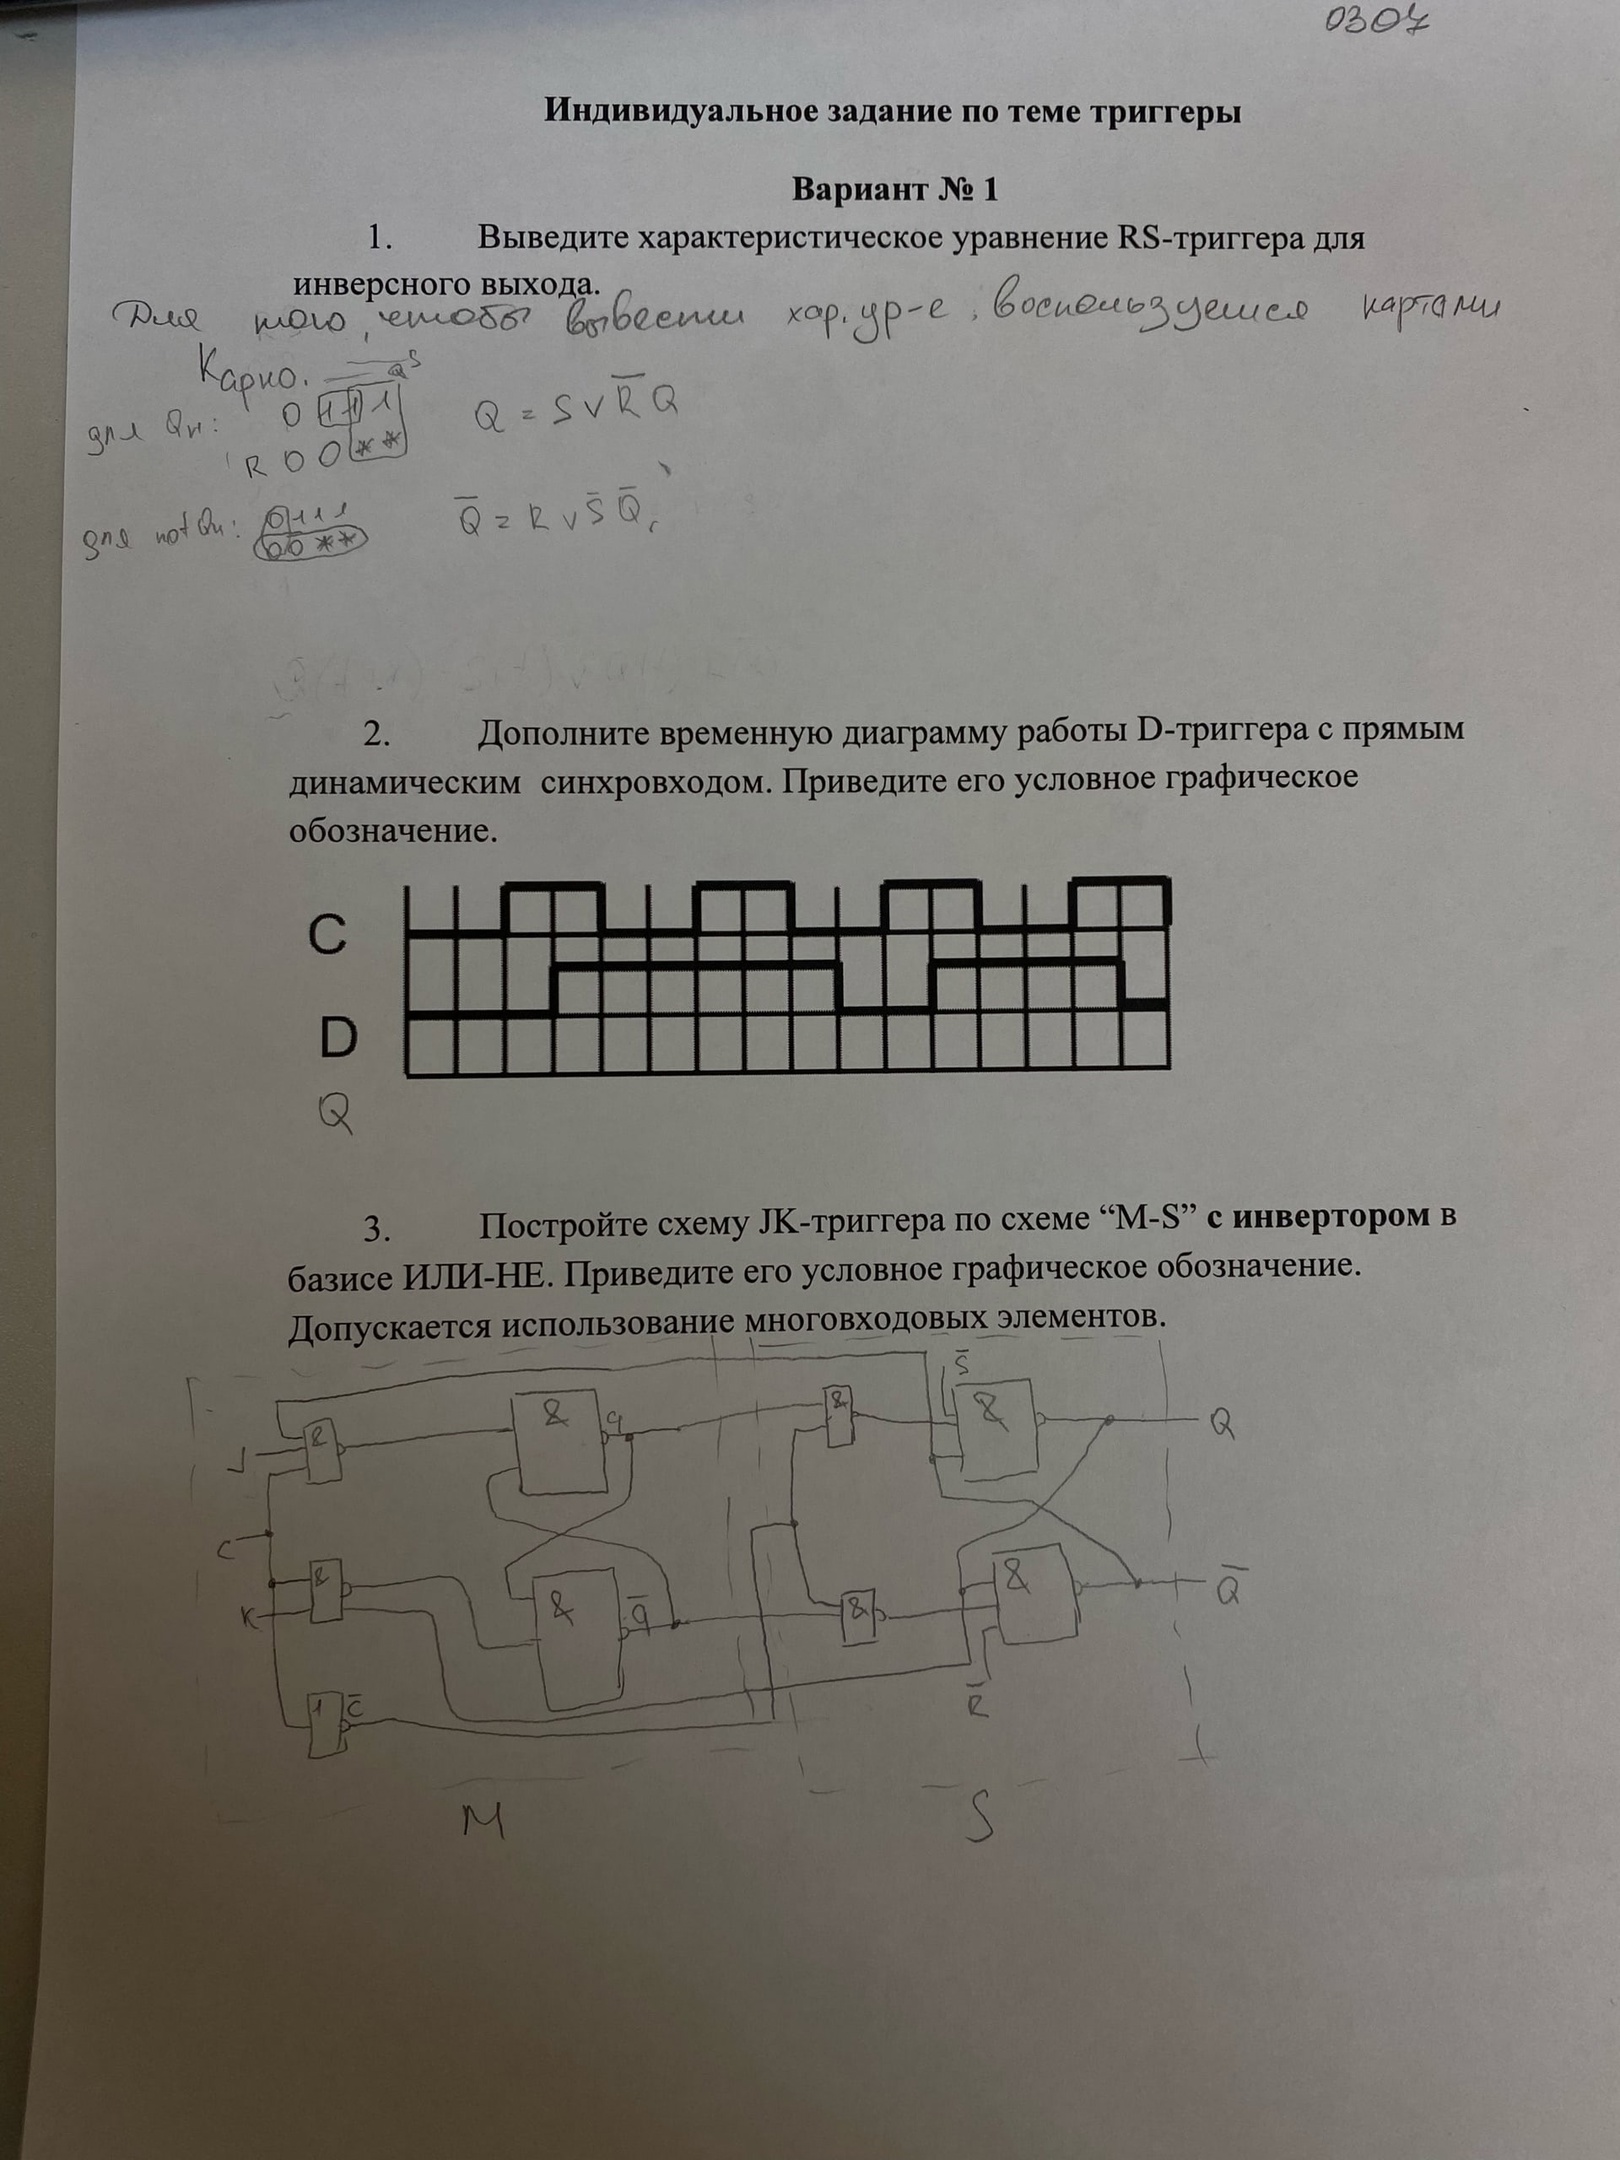 0307
Индивидуальное задание по теме триггеры
Вариант № 1
1. Выведите характеристическое уравнение RS-триггера для
инверсного выхода.
Для того, чтобы вывести хар. ур-е, воспользуемся картами
Карно.
Q S
для Qн: 0 1 1 1
R 0 0 * *
Q = S ∨ R̅ Q
для not Qн: 0 1 1 1
0 0 * *
Q̅ = R ∨ S̅ Q̅
2. Дополните временную диаграмму работы D-триггера с прямым
динамическим синхровходом. Приведите его условное графическое
обозначение.
C
D
Q
3. Постройте схему JK-триггера по схеме “M-S” с инвертором в
базисе ИЛИ-НЕ. Приведите его условное графическое обозначение.
Допускается использование многовходовых элементов.
S̅
& & q & & Q
J
C
K & & q̅ & & Q̅
1 C̅
R̅
M S